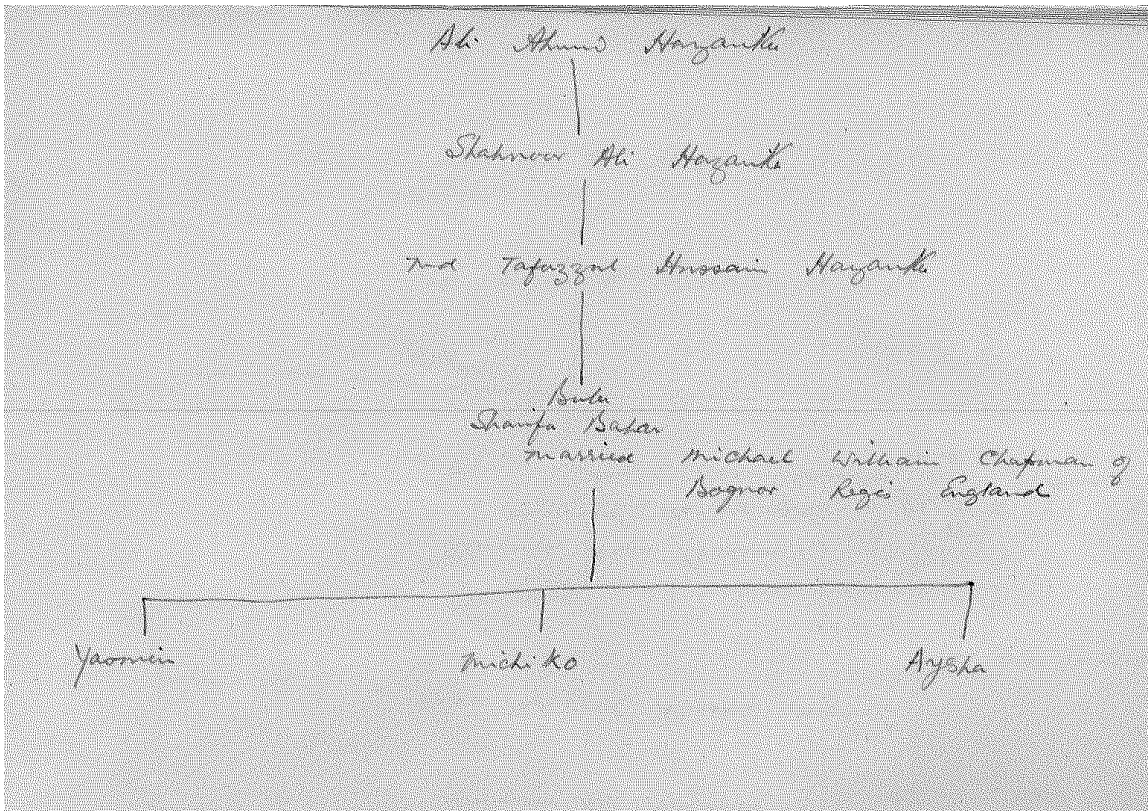 Ali Ahmed Hazarika
Shahnoor Ali Hazarika
Md Tafuzzul Hussain Hazarika
Bulu
Sharifa Bahar
married Michael William Chapman of
Bognor Regis England
Yasmin
Michiko
Aysha